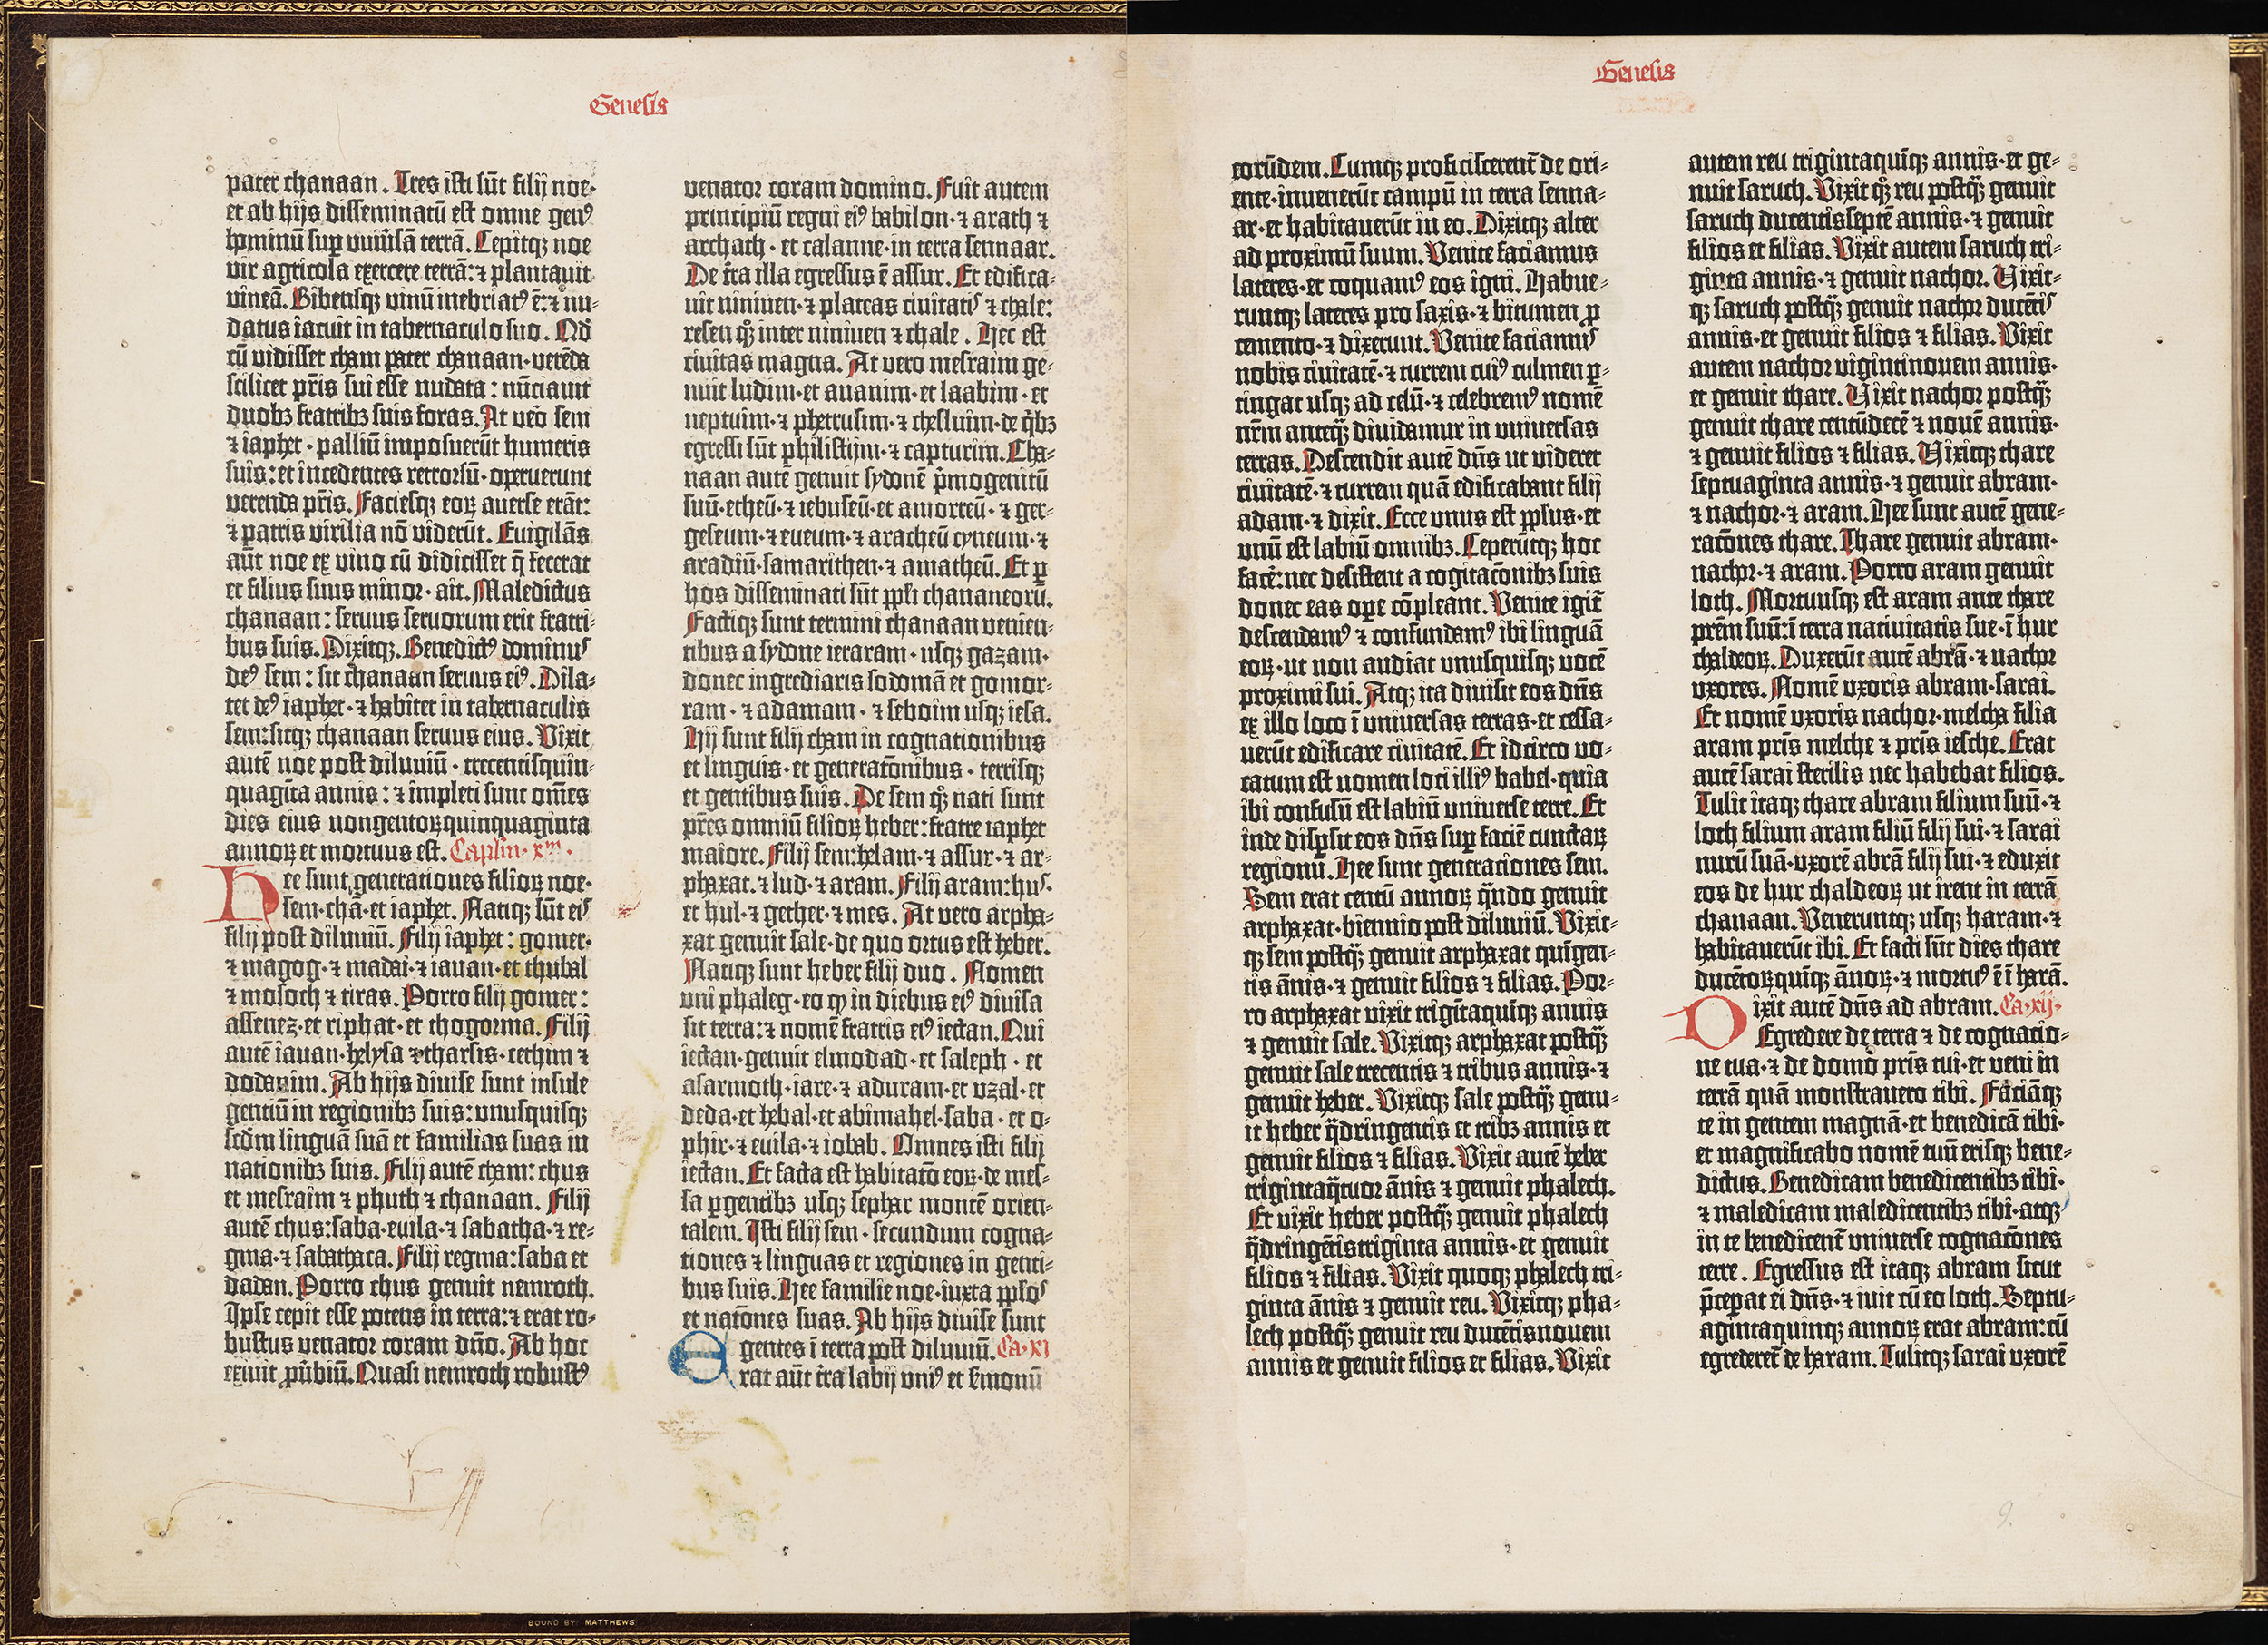 Genesis
pater chanaan. Tres isti sūt filij noe·
et ab hijs disseminatū est omne genꝰ
hominū sup vniūsā terrā. Cepitqꝫ noe
vir agricola exercere terrā: ⁊ plantauit
vineā. Bibensqꝫ vinū inebriatꝰ ē: ⁊ nu⸗
datus iacuit in tabernaculo suo. Qd̄
cū vidisset cham pater chanaan· verēda
scilicet pr̄is sui esse nudata: nūciauit
duobꝫ fratribꝫ suis foras. At veo sem
⁊ iaphet· palliū imposuerūt humeris
suis: et incedentes retrorsū· operuerunt
verenda pr̄is. Faciesqꝫ eoꝝ auerse erāt:
⁊ patris virilia nō viderūt. Euigilās
aūt noe ex vino cū didicisset q̄ fecerat
ei filius suus minor· ait. Maledictus
chanaan: seruus seruorum erit fratri⸗
bus suis. Dixitqꝫ. Benedictꝰ dominus
deꝰ sem: sit chanaan seruus eiꝰ. Dila⸗
tet deꝰ iaphet· ⁊ habitet in tabernaculis
sem: sitqꝫ chanaan seruus eius. Vixit
autē noe post diluuiū· trecentisquin⸗
quagīta annis: ⁊ impleti sunt om̄es
dies eius nongentoꝝquinquaginta
annoꝝ et mortuus est. Capłm· xᵐ·
Hee sunt generationes filioꝝ noe·
sem· chā· et iaphet. Natiqꝫ sūt eis
filij post diluuiū. Filij iaphet: gomer·
⁊ magog· ⁊ madai· ⁊ iauan· et thubal
⁊ mosoch ⁊ tiras. Porro filij gomer:
assenez· et riphat· et thogorma. Filij
autē iauan· helysa ⁊ tharsis· cethim ⁊
dodanim. Ab hijs diuise sunt insule
gentiū in regionibꝫ suis: vnusquisqꝫ
scd̄m linguā suā et familias suas in
nationibꝫ suis. Filij autē cham: chus
et mesraim ⁊ phuth ⁊ chanaan. Filij
autē chus: saba· euila· ⁊ sabatha· ⁊ re⸗
gma· ⁊ sabathaca. Filij regma: saba et
dadan. Porro chus genuit nemroth.
Ipse cepit esse potens in terra: ⁊ erat ro⸗
bustus venator coram dn̄o. Ab hoc
exiuit ꝓūbiū. Quasi nemroth robustꝰ
venator coram domino. Fuit autem
principiū regni eiꝰ babilon· ⁊ arath ⁊
archath· et calanne· in terra sennaar.
De tr̄a illa egressus ē assur. Et edifica⸗
uit niniuen· ⁊ plateas ciuitatis ⁊ chale:
resen qͦꝫ inter niniuen ⁊ chale. Hec est
ciuitas magna. At vero mesraim ge⸗
nuit ludim· et ananim· et laabim· et
neptuim· ⁊ phetrusim· ⁊ chesluim· de q̄bꝫ
egressi sūt philistijm· ⁊ capturim. Cha⸗
naan autē genuit sydonē p̄mogenitū
suū· etheū· ⁊ iebuseū· et amorreū· ⁊ ger⸗
geseum· ⁊ eueum· ⁊ aracheū cyneum· ⁊
aradiū· samarithen· ⁊ amatheū. Et ꝑ
hos disseminati sūt ppl̄i chananeorū.
Factiqꝫ sunt termini chanaan venien⸗
tibus a sydone ieraram· usqꝫ gazam·
donec ingrediaris sodomā et gomor⸗
ram· ⁊ adamam· ⁊ seboim usqꝫ iesa.
Hij sunt filij cham in cognationibus
et linguis· et generatōnibus· terrisqꝫ
et gentibus suis. De sem qͦꝫ nati sunt
pr̄es omniū filioꝝ heber: fratre iaphet
maiore. Filij sem: helam· ⁊ assur· ⁊ ar⸗
phaxat· ⁊ lud· ⁊ aram. Filij aram: hus·
et hul· ⁊ gether· ⁊ mes. At vero arpha⸗
xat genuit sale· de quo ortus est heber.
Natiqꝫ sunt heber filij duo. Nomen
vni phaleg· eo ꝙ in diebus eiꝰ diuisa
sit terra: ⁊ nomē fratris eiꝰ iectan. Qui
iectan· genuit elmodad· et saleph· et
asarmoth· iare· ⁊ aduram· et vzal· et
deda· et hebal· et abimahel· saba· et o⸗
phir· ⁊ euila· ⁊ iobab. Omnes isti filij
iectan. Et facta est habitatō eoꝝ· de mes⸗
sa ꝑgentibꝫ usqꝫ sephar montē orien⸗
talem. Isti filij sem· secundum cogna⸗
tiones ⁊ linguas et regiones in genti⸗
bus suis. Hee familie noe· iuxta pp̄los
et natōnes suas. Ab hijs diuise sunt
gentes ī terra post diluuiū. Ca·xi
Erat aūt tr̄a labij vniꝰ et s̄monū
Genesis
eorūdem. Cumqꝫ proficiscerent̄ de ori⸗
ente· inuenerūt campū in terra senna⸗
ar· et habitauerūt in eo. Dixitqꝫ alter
ad proximū suum. Venite faciamus
lateres· et coquamꝰ eos igni. Habue⸗
runtqꝫ lateres pro saxis· ⁊ bitumen ꝓ
cemento· ⁊ dixerunt. Venite faciamus
nobis ciuitatē· ⁊ turrem cuiꝰ culmen ꝑ⸗
tingat usqꝫ ad celū· ⁊ celebremꝰ nomē
nr̄m anteq̄ꝫ diuidamur in vniuersas
terras. Descendit autē dn̄s ut videret
ciuitatē· ⁊ turrem quā edificabant filij
adam· ⁊ dixit. Ecce vnus est pp̄lus· et
vnū est labiū omnibꝫ. Ceperūtqꝫ hoc
facē: nec desistent a cogitacōnibꝫ suis
donec eas ope cōpleant. Venite igit̄
descendamꝰ ⁊ confundamꝰ ibi linguā
eoꝝ· ut non audiat vnusquisqꝫ vocē
proximi sui. Atqꝫ ita diuisit eos dn̄s
ex illo loco ī vniuersas terras· et cessa⸗
uerūt edificare ciuitatē. Et idcirco vo⸗
catum est nomen loci illiꝰ babel· quia
ibi confusū est labiū vniuerse terre. Et
inde dispsit eos dn̄s sup faciē cunctaꝝ
regionū. Hee sunt generationes sem.
Sem erat centū annoꝝ q̄ndo genuit
arphaxat· biennio post diluuiū. Vixit⸗
qꝫ sem postq̄ꝫ genuit arphaxat quīgen⸗
tis ānis· ⁊ genuit filios ⁊ filias. Por⸗
ro arphaxat vixit trigītaquīqꝫ annis
⁊ genuit sale. Vixitqꝫ arphaxat postq̄ꝫ
genuit sale trecentis ⁊ tribus annis· ⁊
genuit heber. Vixitqꝫ sale postq̄ꝫ genu⸗
it heber q̄dringentis et tribꝫ annis et
genuit filios ⁊ filias. Vixit autē heber
trigintaq̄tuor ānis ⁊ genuit phalech.
Et vixit heber postq̄ꝫ genuit phalech
q̄dringētistriginta annis· et genuit
filios ⁊ filias. Vixit quoqꝫ phalech tri⸗
ginta ānis ⁊ genuit reu. Vixitqꝫ pha⸗
lech postq̄ꝫ genuit reu ducētisnouem
annis et genuit filios et filias. Vixit
autem reu trigintaquīqꝫ annis· et ge⸗
nuit saruch. Vixit qͦꝫ reu postq̄ꝫ genuit
saruch ducentisseptē annis· ⁊ genuit
filios et filias. Vixit autem saruch tri⸗
ginta annis· ⁊ genuit nachor. Vixit⸗
qꝫ saruch postq̄ꝫ genuit nachor ducētis
annis· et genuit filios ⁊ filias. Vixit
autem nachor vigintinouem annis·
et genuit thare. Vixit nachor postq̄ꝫ
genuit thare centūdecē ⁊ nouē annis·
⁊ genuit filios ⁊ filias. Vixitqꝫ thare
septuaginta annis· ⁊ genuit abram·
⁊ nachor· ⁊ aram. Hee sunt autē gene⸗
racōnes thare. Thare genuit abram·
nachor· ⁊ aram. Porro aram genuit
loth. Mortuusqꝫ est aram ante thare
prēm suū: ī terra natiuitatis sue· ī hur
chaldeoꝝ. Duxerūt autē abrā· ⁊ nachor
vxores. Nomē vxoris abram· sarai.
Et nomē vxoris nachor· melcha filia
aram pr̄is melche ⁊ pr̄is iesche. Erat
autē sarai sterilis nec habebat filios.
Tulit itaqꝫ thare abram filium suū· ⁊
loth filium aram filiū filij sui· ⁊ sarai
nurū suā· vxorē abrā filij sui· ⁊ eduxit
eos de hur chaldeoꝝ ut irent in terrā
chanaan. Veneruntqꝫ usqꝫ haram· ⁊
habitauerūt ibi. Et facti sūt dies thare
ducētoꝝquīqꝫ ānoꝝ· ⁊ mortuꝰ ē ī harā.
Dixit autē dn̄s ad abram. Ca·xij·
Egredere de terra ⁊ de cognatio⸗
ne tua· ⁊ de domo pr̄is tui· et veni in
terrā quā monstrauero tibi. Faciāqꝫ
te in gentem magnā· et benedicā tibi·
et magnificabo nomē tuū erisqꝫ bene⸗
dictus. Benedicam benedicentibꝫ tibi·
⁊ maledicam maledicentibꝫ tibi· atqꝫ
in te benedicent̄ vniuerse cognatōnes
terre. Egressus est itaqꝫ abram sicut
p̄ceperat ei dn̄s· ⁊ iuit cū eo loth. Septu⸗
agintaquinqꝫ annoꝝ erat abram: cū
egrederet̄ de haram. Tulitqꝫ sarai vxorē
9.
BOUND BY MATTHEWS